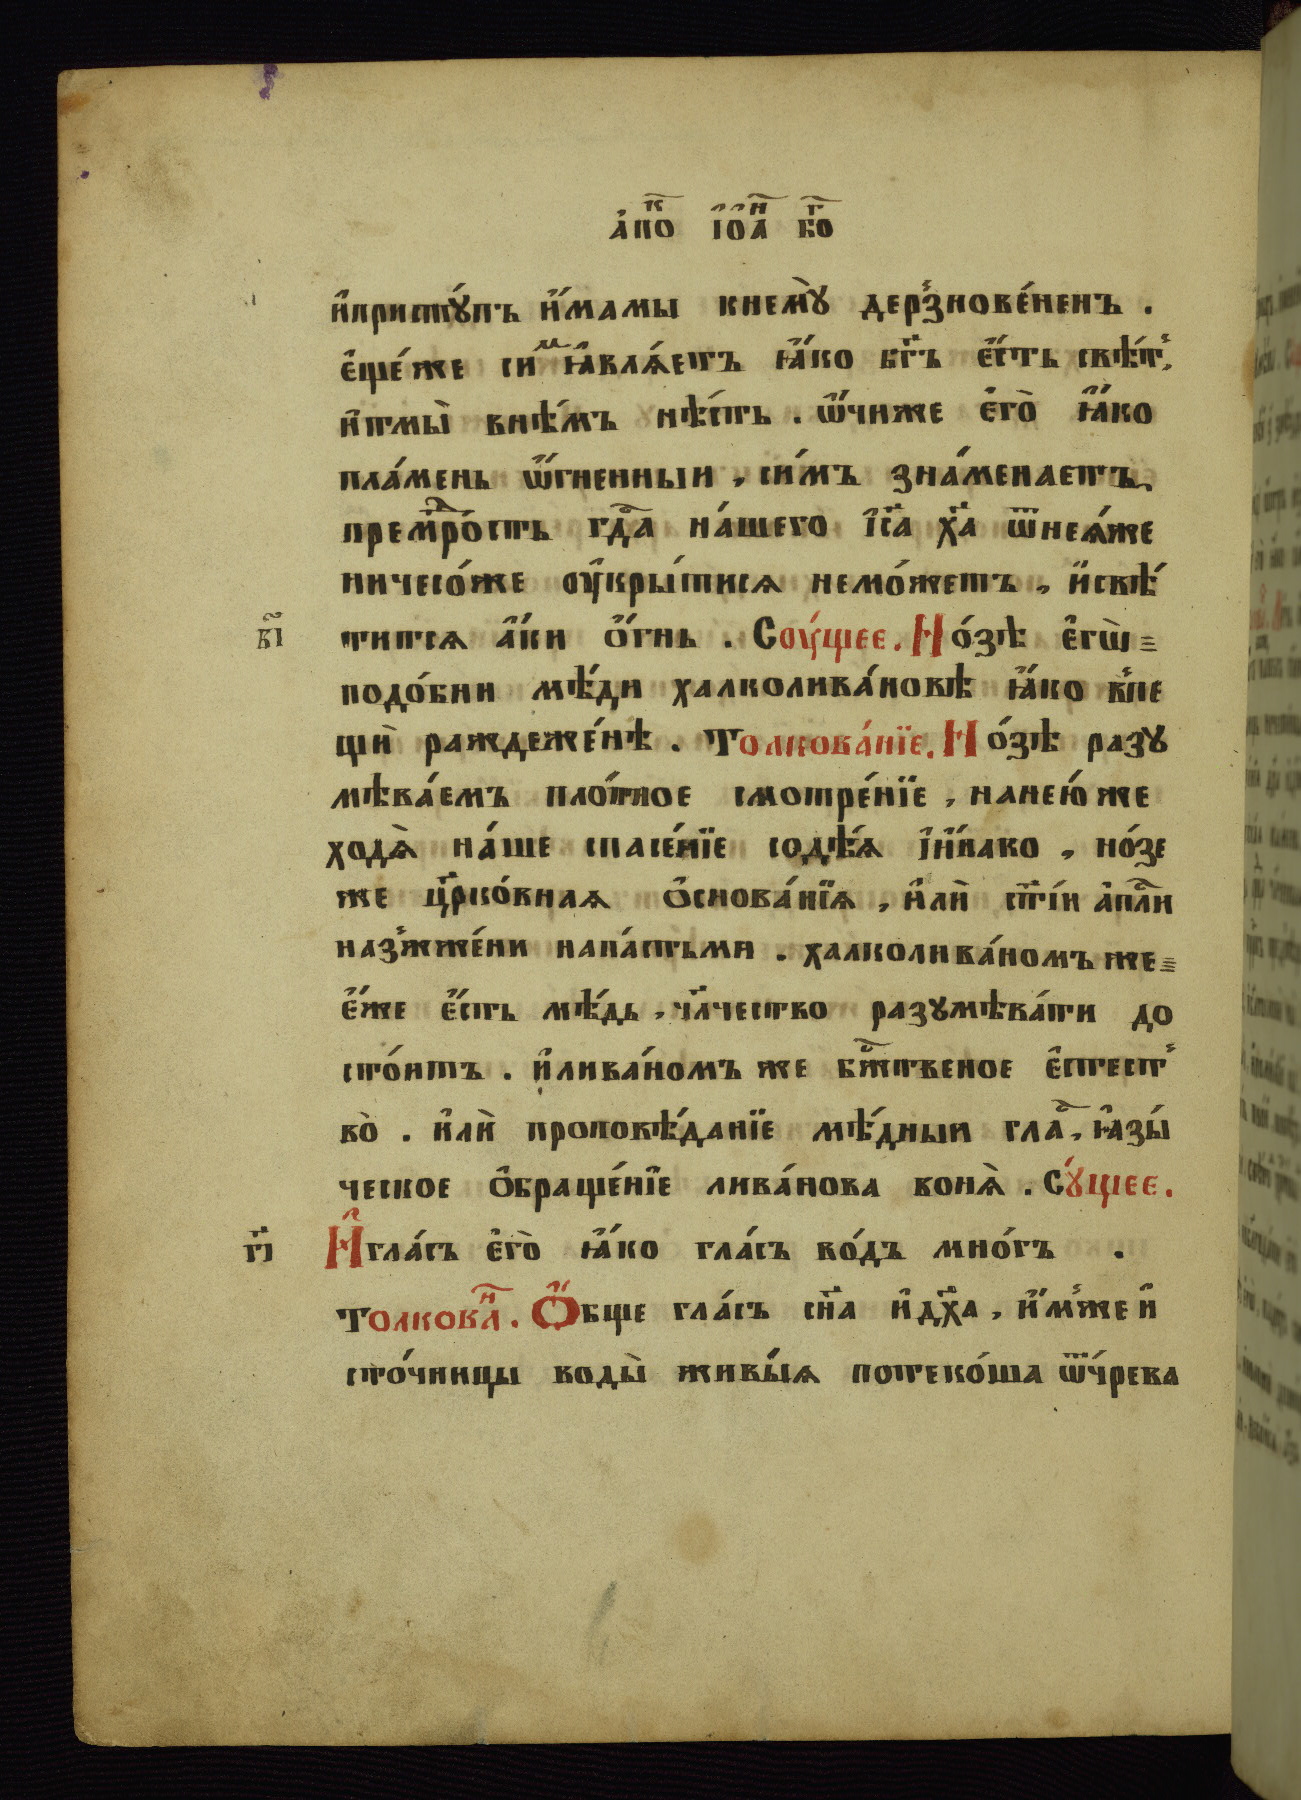 а҆пⷦ҇о і҆ѡ҆аⷩ҇ боⷢ҇
и҆присту́пъ и҆́мамы кнемꙋ̀ дерꙁнове́ненъ .
є҆ще́же сиⷨ ꙗ҆влѧ́етъ ꙗ҆́ко бг҃ъ є҆́сть свѣ́т,
и҆тмы̀ внѣ́мъ нѣ́сть . ѡ҆́чиже є҆го̀ ꙗ҆́ко
пла́мень ѡ҆́гненныи , си́мъ зна́менаетъ,
премⷣро́сть гдⷭ҇а на́шего і҆с҃а хр҃а ѿнеѧ́же
ничесо́же оу҆кры́тисѧ немо́жетъ , и҆свѣ́
в҃і титсѧ а҆́ки ѻ҆́гнь . Соу́щее . Но́зѣ є҆гѡ̀=
подо́бни мѣ́ди халколива́новѣ ꙗ҆́ко впе
щѝ раждеже́нѣ . Толкова́нїе . Но́зѣ разꙋ
мѣва́емъ пло́тное смотре́нїе , нанею́же
ходѧ̀ на́ше спасе́нїе содѣ́ѧ и҆и҆́нако , но́зе
же цр҃ко́внаѧ ѻ҆снова́нїѧ , и҆лѝ ст҃і́и а҆пⷭ҇ли
назжже́ни напа́стьми . халколива́номъже=
є҆́же є҆́сть мѣ́дь , чл҃чество разꙋмѣва́ти до
сто́итъ . и҆лива́номъ же бжⷭ҇твеное є҆стест
во̀ . и҆лѝ проповѣ́данїе мѣ́дныи глаⷭ҇ , ꙗ҆зы́
ческое ѻ҆браще́нїе лива́нова вонѧ̀ . Сꙋ́щее .
г҃і И҆гла́съ є҆го̀ ꙗ҆́ко гла́съ во́дъ мно́гъ .
Толковаⷩ҇ . Ѻ҆́бще гла́съ сн҃а и҆дх҃а , и҆́мже и҆
сто́чницы воды̀ живы́ѧ потеко́ша ѿчре́ва